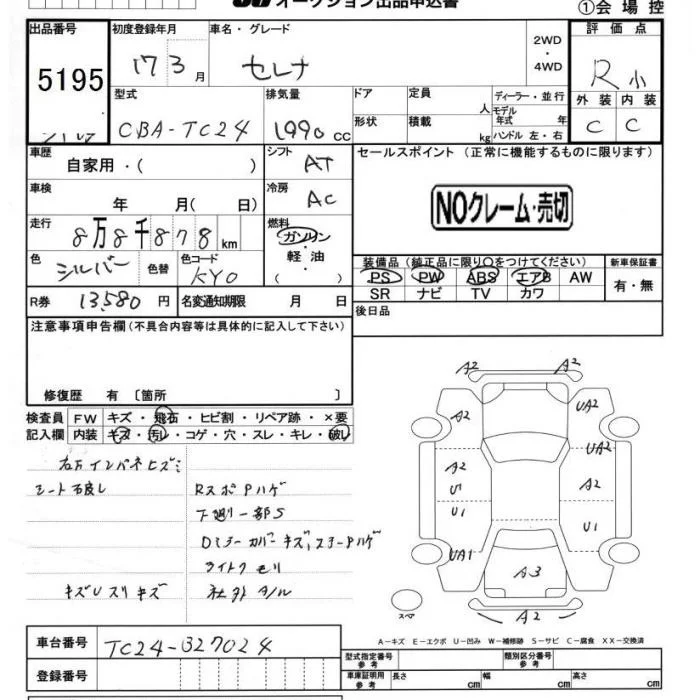 オークション出品申込書
①会場控
出品番号 初度登録年月 車名・グレード 評価点
5195 17 3月 セレナ 2WD・4WD R小
型式 排気量 ドア 定員 人 ディーラー・並行 外装 内装
CBA-TC24 1990cc 形状 積載 kg モデル年式 年 ハンドル 左・右 C C
車歴 自家用・( ) シフト AT セールスポイント (正常に機能するものに限ります)
車検 年 月(日) 冷房 AC NOクレーム・売切
走行 8万8千878km 燃料 ガソリン・軽油・( )
色 シルバー 色替 色コード KY0
装備品 (純正品に限り〇をつけてください) 新車保証書
PS PW ABS エアB AW 有・無
SR ナビ TV カワ
R券 13,580円 名変通知期限 月 日 後日品
注意事項申告欄(不具合内容等は具体的に記入して下さい)
修復歴 有〔箇所 〕
検査員 FW キズ・飛石・ヒビ割・リペア跡・×要
記入欄 内装 キズ・汚レ・コゲ・穴・スレ・キレ・破レ
シート破れ
RスポPハゲ
下廻り一部S
ライトクモリ
キズUスリキズ
社外タノル
A2
A2 A2 UA2
UA2
A2 A2
U1
U1 U1
UA1
A3
A2
スペア
A-キズ E-エクボ U-凹み W-補修跡 S-サビ C-腐食 XX-交換済
車台番号 TC24-327024
型式指定番号 参考 類別区分番号 参考
登録番号
車庫証明用 参考 長さ cm 幅 cm 高さ cm